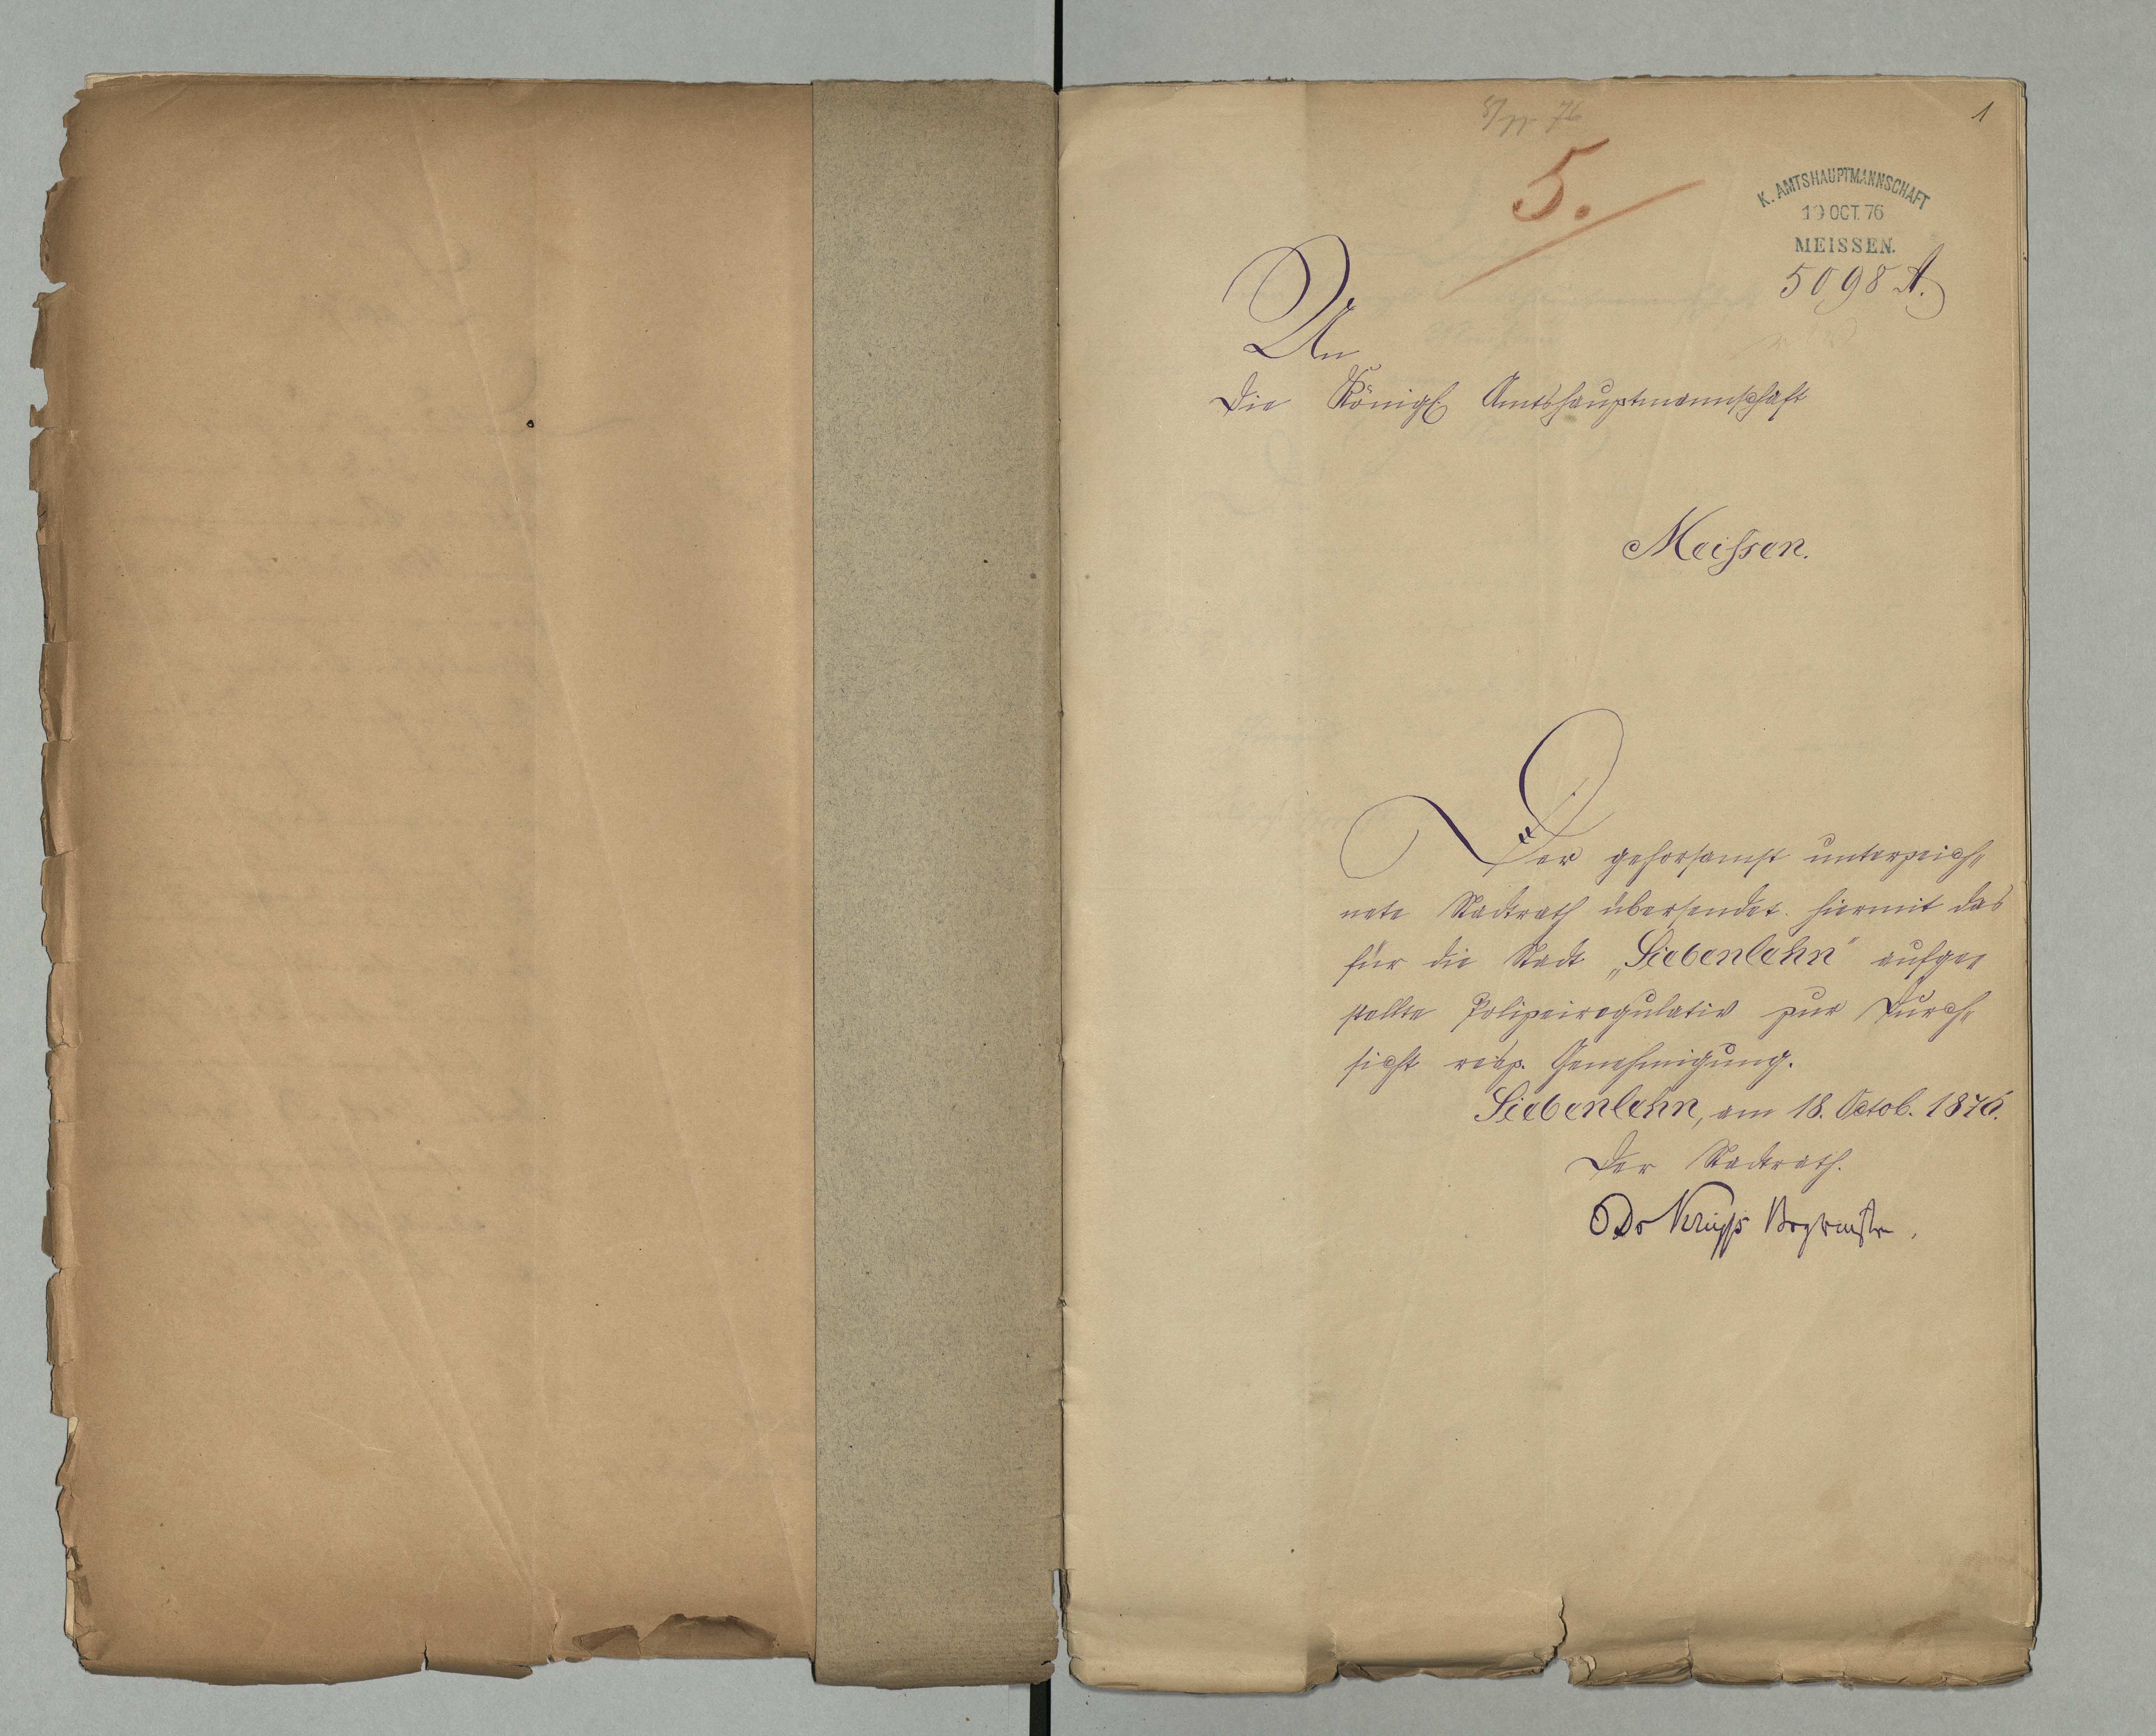 1
5.
K. AMTSHAUPTMANNSCHAFT
19 OCT. 76
MEISSEN.
5098 A.
An
die Königl. Amtshauptmannschaft
Meissen.
Der gehorsamst unterzeich„
nete Stadtrath übersendet hiermit das
für die Stadt „Siebenlehn“ aufge„
stellte Polizeiregulativ zur Durch„
sicht resp. Genehmigung.
Siebenlehn, am 18. Octob. 1876.
Der Stadtrath.